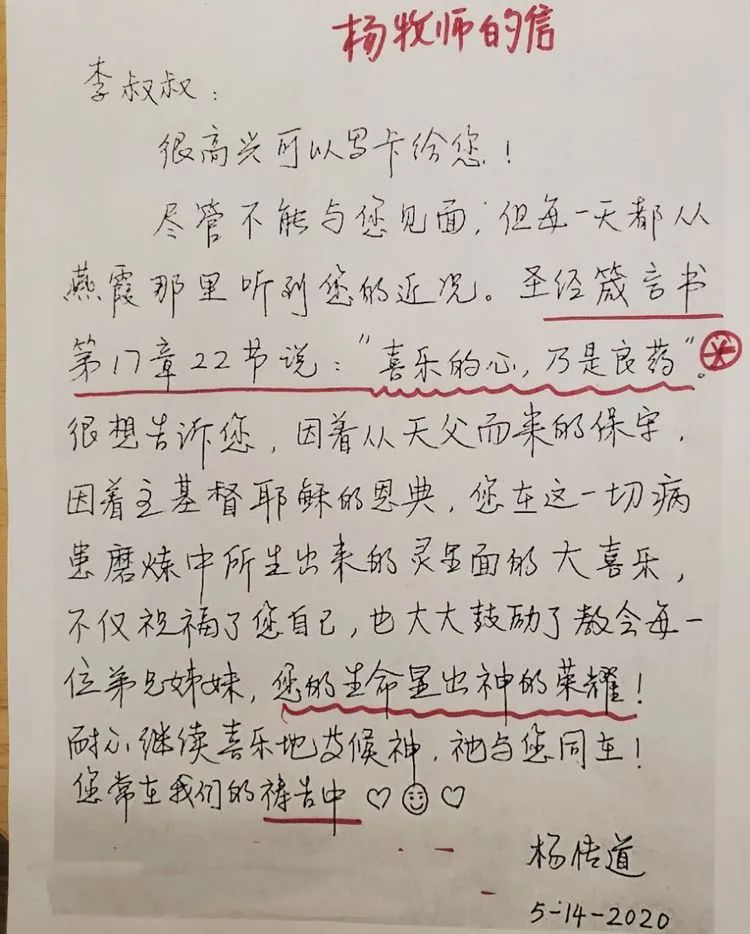 杨牧师的信
李叔叔：
很高兴可以写卡给您！
尽管不能与您见面，但每一天都从
燕霞那里听到您的近况。圣经箴言书
第17章22节说："喜乐的心，乃是良药"。
很想告诉您，因着从天父而来的保守，
因着主基督耶稣的恩典，您在这一切病
患磨炼中所生出来的灵里面的大喜乐，
不仅祝福了您自己，也大大鼓励了教会每一
位弟兄姊妹，您的生命显出神的荣耀！
耐心继续喜乐地等候神，祂与您同在！
您常在我们的祷告中♡☺♡
杨传道
5-14-2020